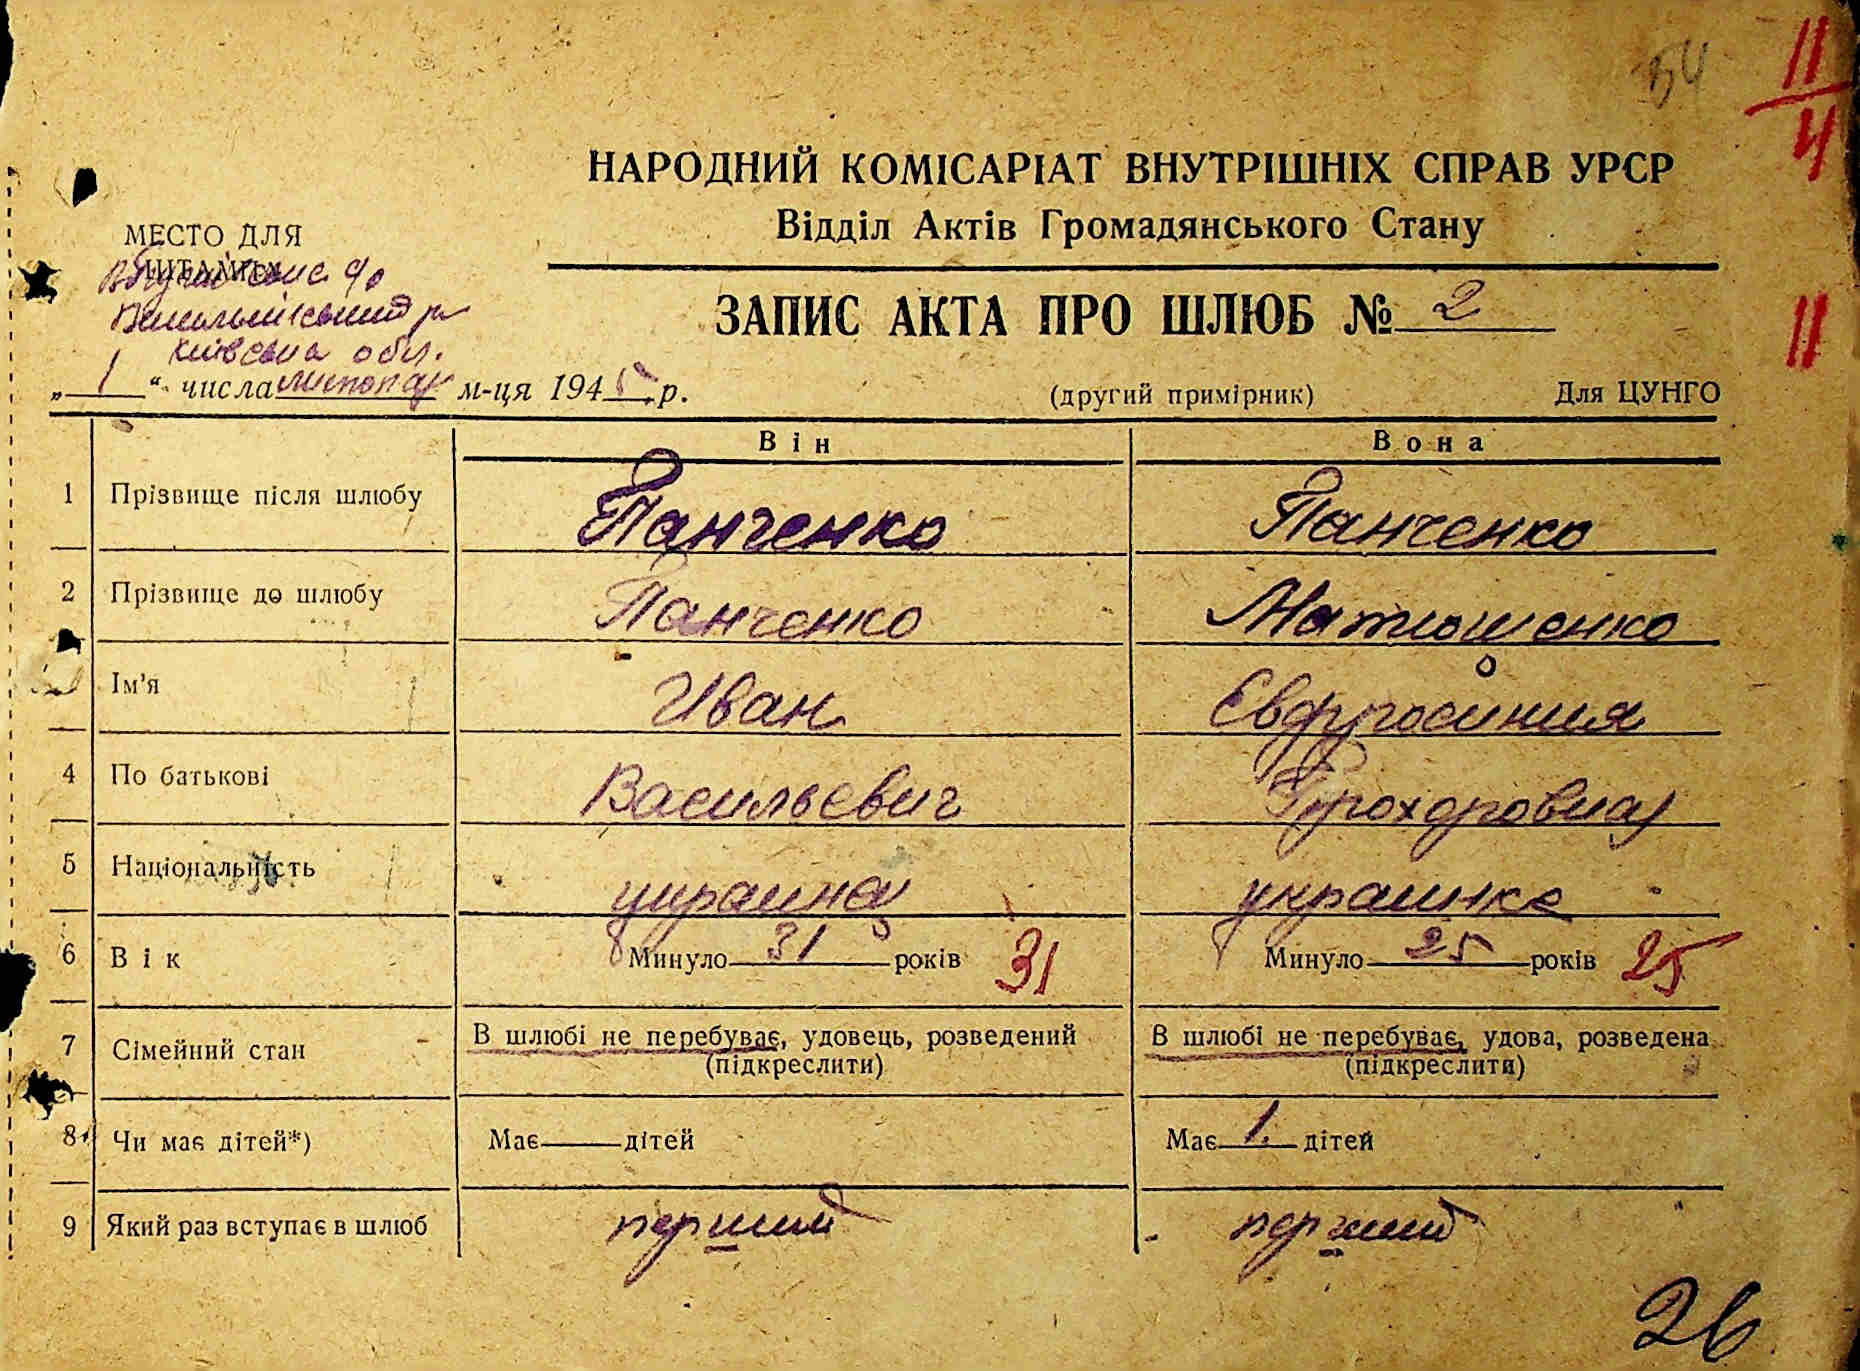 54
11/4
НАРОДНИЙ КОМІСАРІАТ ВНУТРІШНІХ СПРАВ УРСР
Відділ Актів Громадянського Стану
МЕСТО ДЛЯ
ШТАМПА
р
Київська обл.
ЗАПИС АКТА ПРО ШЛЮБ № 2
11
„ 1 “ числа листопад м-ця 1945 р.
(другий примірник)
Для ЦУНГО
Він Вона
1 Прізвище після шлюбу Панченко Панченко
2 Прізвище до шлюбу Панченко Матюшенко
Ім'я Иван Євфросиния
4 По батькові Васильевич Прохоровна
5 Національність украинец украинка
6 Вік Минуло 31 років 31 Минуло 25 років 25
7 Сімейний стан В шлюбі не перебуває, удовець, розведений В шлюбі не перебуває, удова, розведена
(підкреслити) (підкреслити)
8 Чи має дітей*) Має дітей Має 1. дітей
9 Який раз вступає в шлюб перший перший
26